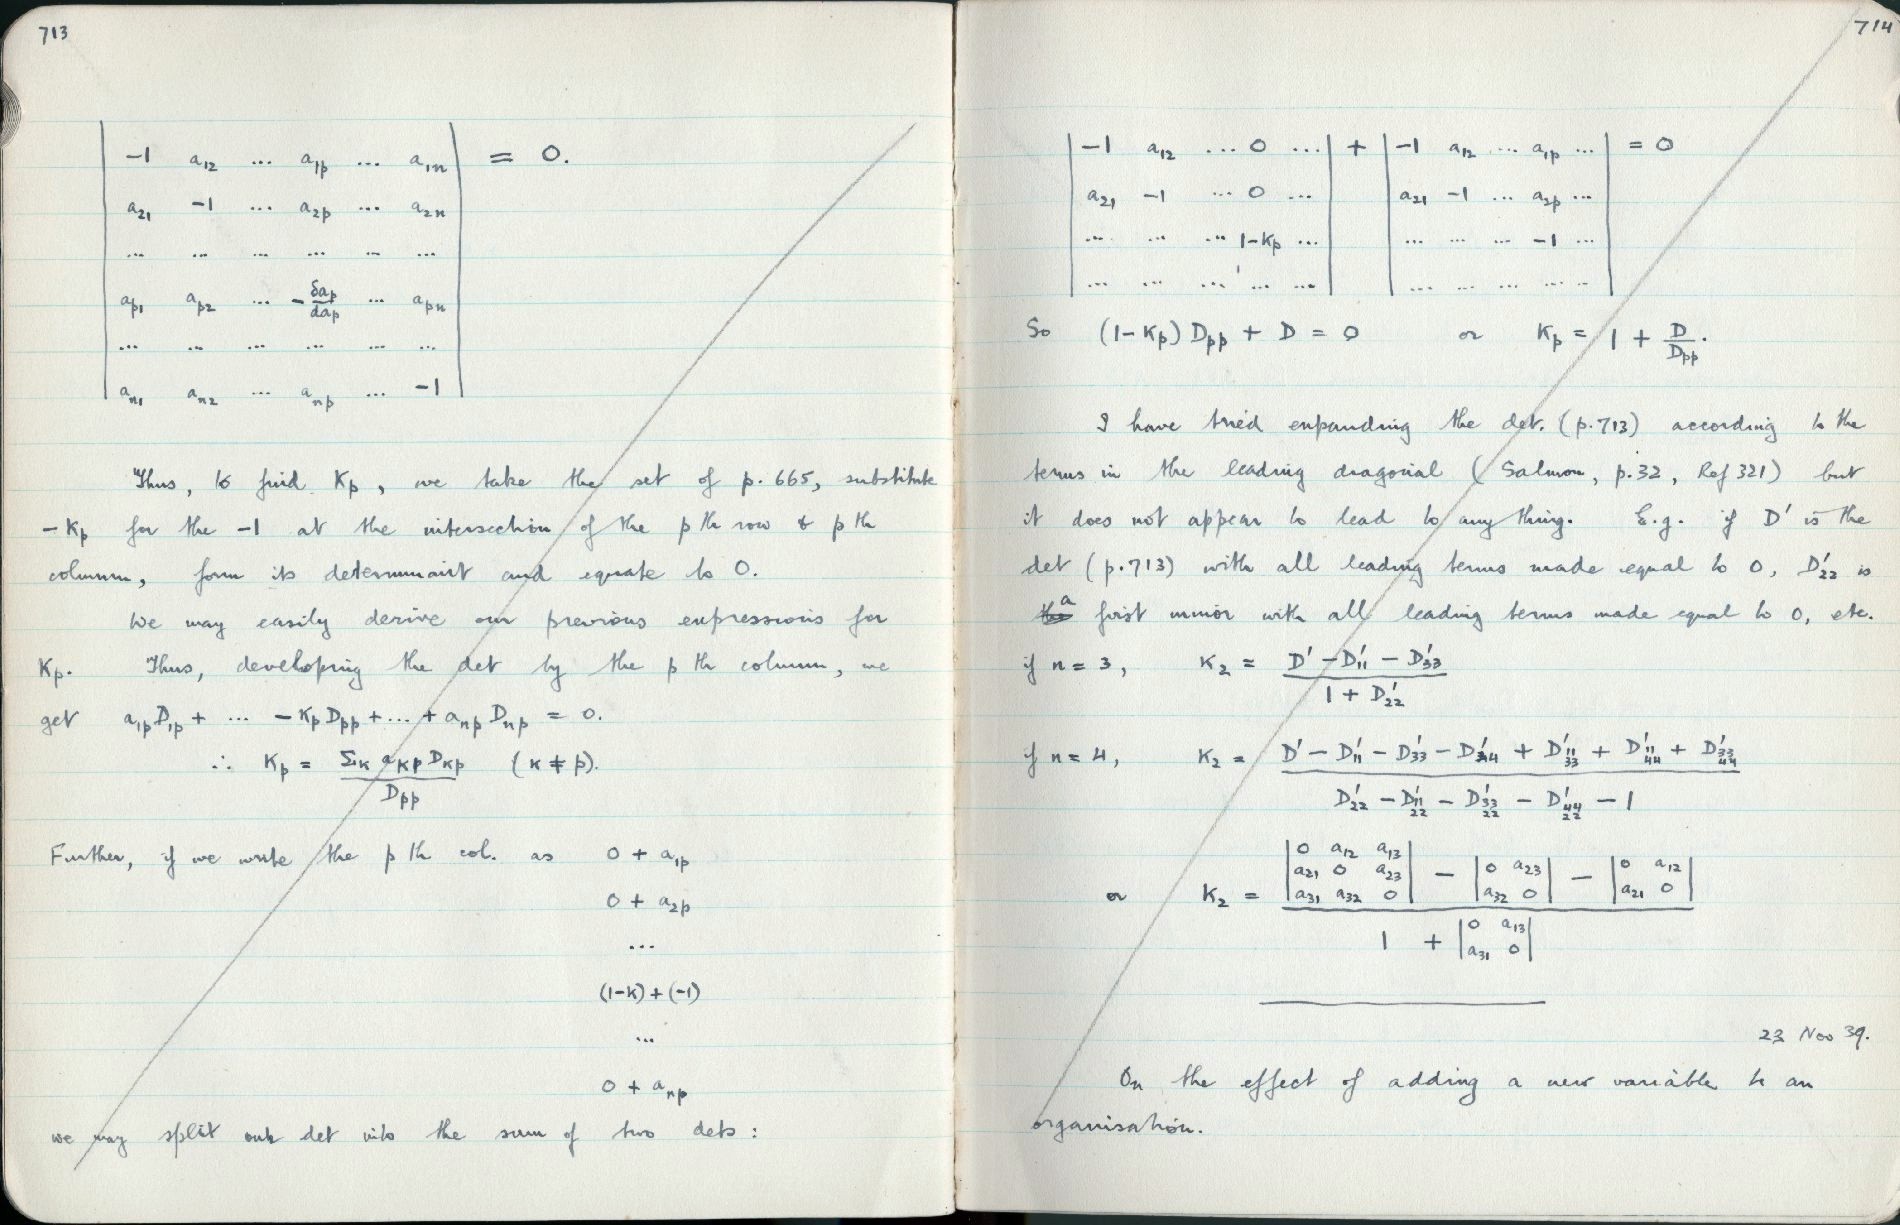 713
| -1 a₁₂ ... a₁p ... a₁n | = 0.
| a₂₁ -1 ... a₂p ... a₂n |
| ... ... ... ... ... ... |
| ap₁ ap₂ ... -δap/dap ... apn |
| ... ... ... ... ... ... |
| an₁ an₂ ... anp ... -1 |
Thus, to find Kp, we take the set of p. 665, substitute
- Kp for the -1 at the intersection of the p th row & p th
column, form its determinant and equate to 0.
We may easily derive our previous expressions for
Kp. Thus, developing the det by the p th column, we
get a₁pD₁p + ... - KpDpp + ... + anpDnp = 0.
∴ Kp = Σκ aκp Dκp / Dpp (κ ≠ p).
Further, if we write the p th col. as 0 + a₁p
0 + a₂p
...
(1-K) + (-1)
...
0 + anp
we may split our det into the sum of two dets:
714
| -1 a₁₂ ... 0 ... | + | -1 a₁₂ ... a₁p ... | = 0
| a₂₁ -1 ... 0 ... | | a₂₁ -1 ... a₂p ... |
| ... ... ... 1-Kp ... | | ... ... ... -1 ... |
| ... ... ... ... ... | | ... ... ... ... ... |
So (1-Kp) Dpp + D = 0 or Kp = 1 + D/Dpp.
I have tried expanding the det. (p.713) according to the
terms in the leading diagonal (Salmon, p.32, Ref 321) but
it does not appear to lead to anything. E.g. if D' is the
det (p.713) with all leading terms made equal to 0, D'₂₂ is
a first minor with all leading terms made equal to 0, etc.
if n = 3, K₂ = (D' - D'₁₁ - D'₃₃) / (1 + D'₂₂)
if n = 4, K₂ = (D' - D'₁₁ - D'₃₃ - D'₄₄ + D'₁₁,₃₃ + D'₁₁,₄₄ + D'₃₃,₄₄) / (D'₂₂ - D'₁₁,₂₂ - D'₃₃,₂₂ - D'₄₄,₂₂ - 1)
or K₂ =
| 0 a₁₂ a₁₃ |
| a₂₁ 0 a₂₃ | - | 0 a₂₃ | - | 0 a₁₂ |
| a₃₁ a₃₂ 0 | | a₃₂ 0 | | a₂₁ 0 |
1 + | 0 a₁₃ |
| a₃₁ 0 |
23 Nov 39.
On the effect of adding a new variable to an
organisation.